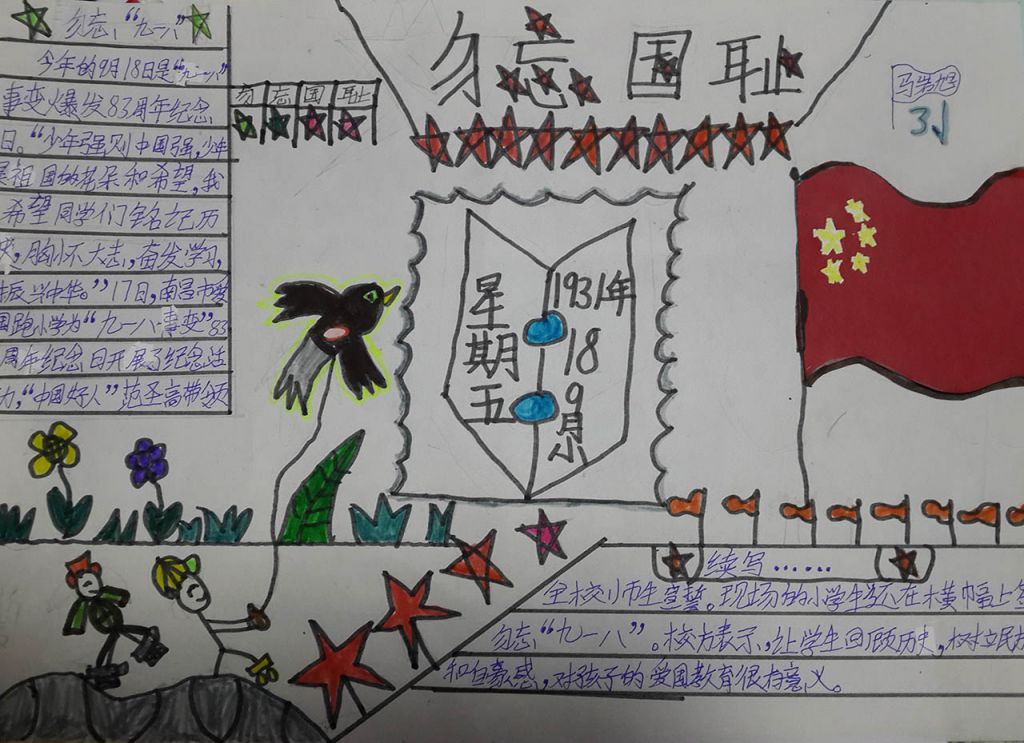 勿忘“九一八”
今年的9月18日是“九一八”
事变爆发83周年纪念
日。“少年强则中国强，少年
是祖国的花朵和希望，我
希望同学们铭记历
史，胸怀大志，奋发学习，
振兴中华。”17日，南昌市爱
国跑小学为“九一八事变”83
周年纪念日开展了纪念活
动，“中国好人”范圣高带领
勿忘国耻
勿忘国耻
马浩旭
31
星期五
1931年
18
9月小
续写……
全校小师生宣誓。现场的小学生还在横幅上签
勿忘“九一八”。校方表示，让学生回顾历史，树立民
和自豪感，对孩子的爱国教育很有意义。